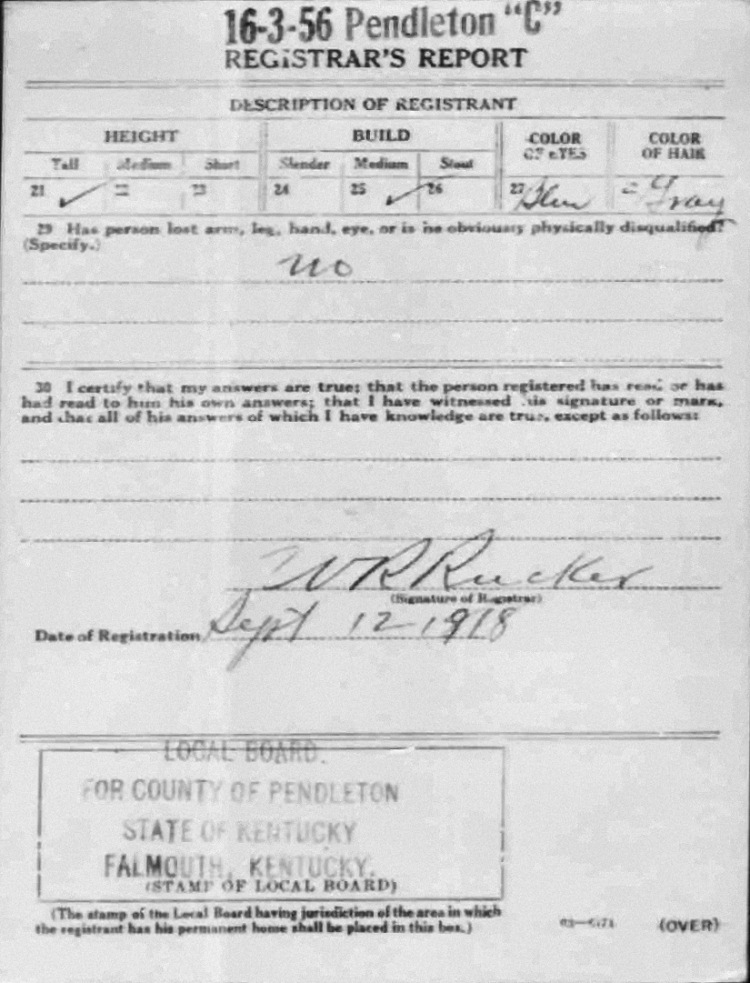 16-3-56 Pendleton "C"
REGISTRAR'S REPORT
DESCRIPTION OF REGISTRANT
HEIGHT BUILD COLOR OF EYES COLOR OF HAIR
Tall Medium Short Slender Medium Stout
21 ✓ 22 23 24 25 ✓ 26 27 Blue Gray
29 Has person lost arm, leg, hand, eye, or is he obviously physically disqualified?
(Specify.)
no
30 I certify that my answers are true; that the person registered has read or has
had read to him his own answers; that I have witnessed his signature or mark,
and that all of his answers of which I have knowledge are true, except as follows:
W R Rucker
(Signature of Registrar)
Date of Registration Sept 12 1918
LOCAL BOARD.
FOR COUNTY OF PENDLETON
STATE OF KENTUCKY
FALMOUTH, KENTUCKY.
(STAMP OF LOCAL BOARD)
(The stamp of the Local Board having jurisdiction of the area in which
the registrant has his permanent home shall be placed in this box.)
(OVER)